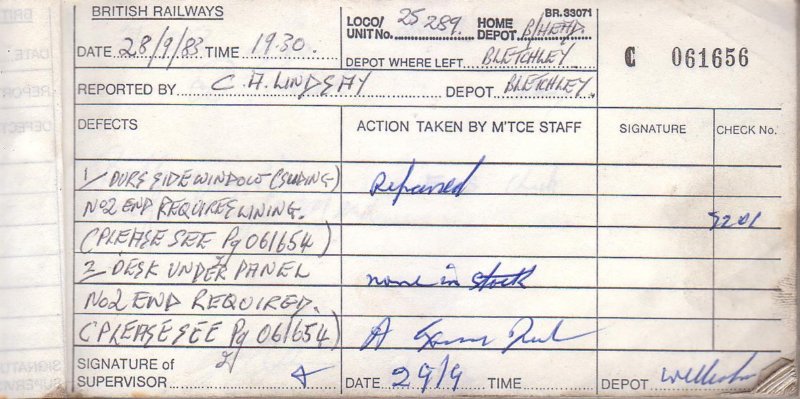 BRITISH RAILWAYS
BR.33071
LOCO/ UNIT No. 25 289. HOME DEPOT B/HEAD.
DATE 28/9/83 TIME 19.30.
C 061656
DEPOT WHERE LEFT BLETCHLEY
REPORTED BY C. A. LINDSAY DEPOT BLETCHLEY.
DEFECTS ACTION TAKEN BY M'TCE STAFF SIGNATURE CHECK No.
1/ DVRS SIDE WINDOW (SLIDING) Repaired
No2 END REQUIRES LINING. 3201
(PLEASE SEE Pg 061654)
2/ DESK UNDER PANEL none in stock
No2 END REQUIRED.
(PLEASE SEE Pg 061654) A
SIGNATURE of
SUPERVISOR DATE 29/9 TIME DEPOT